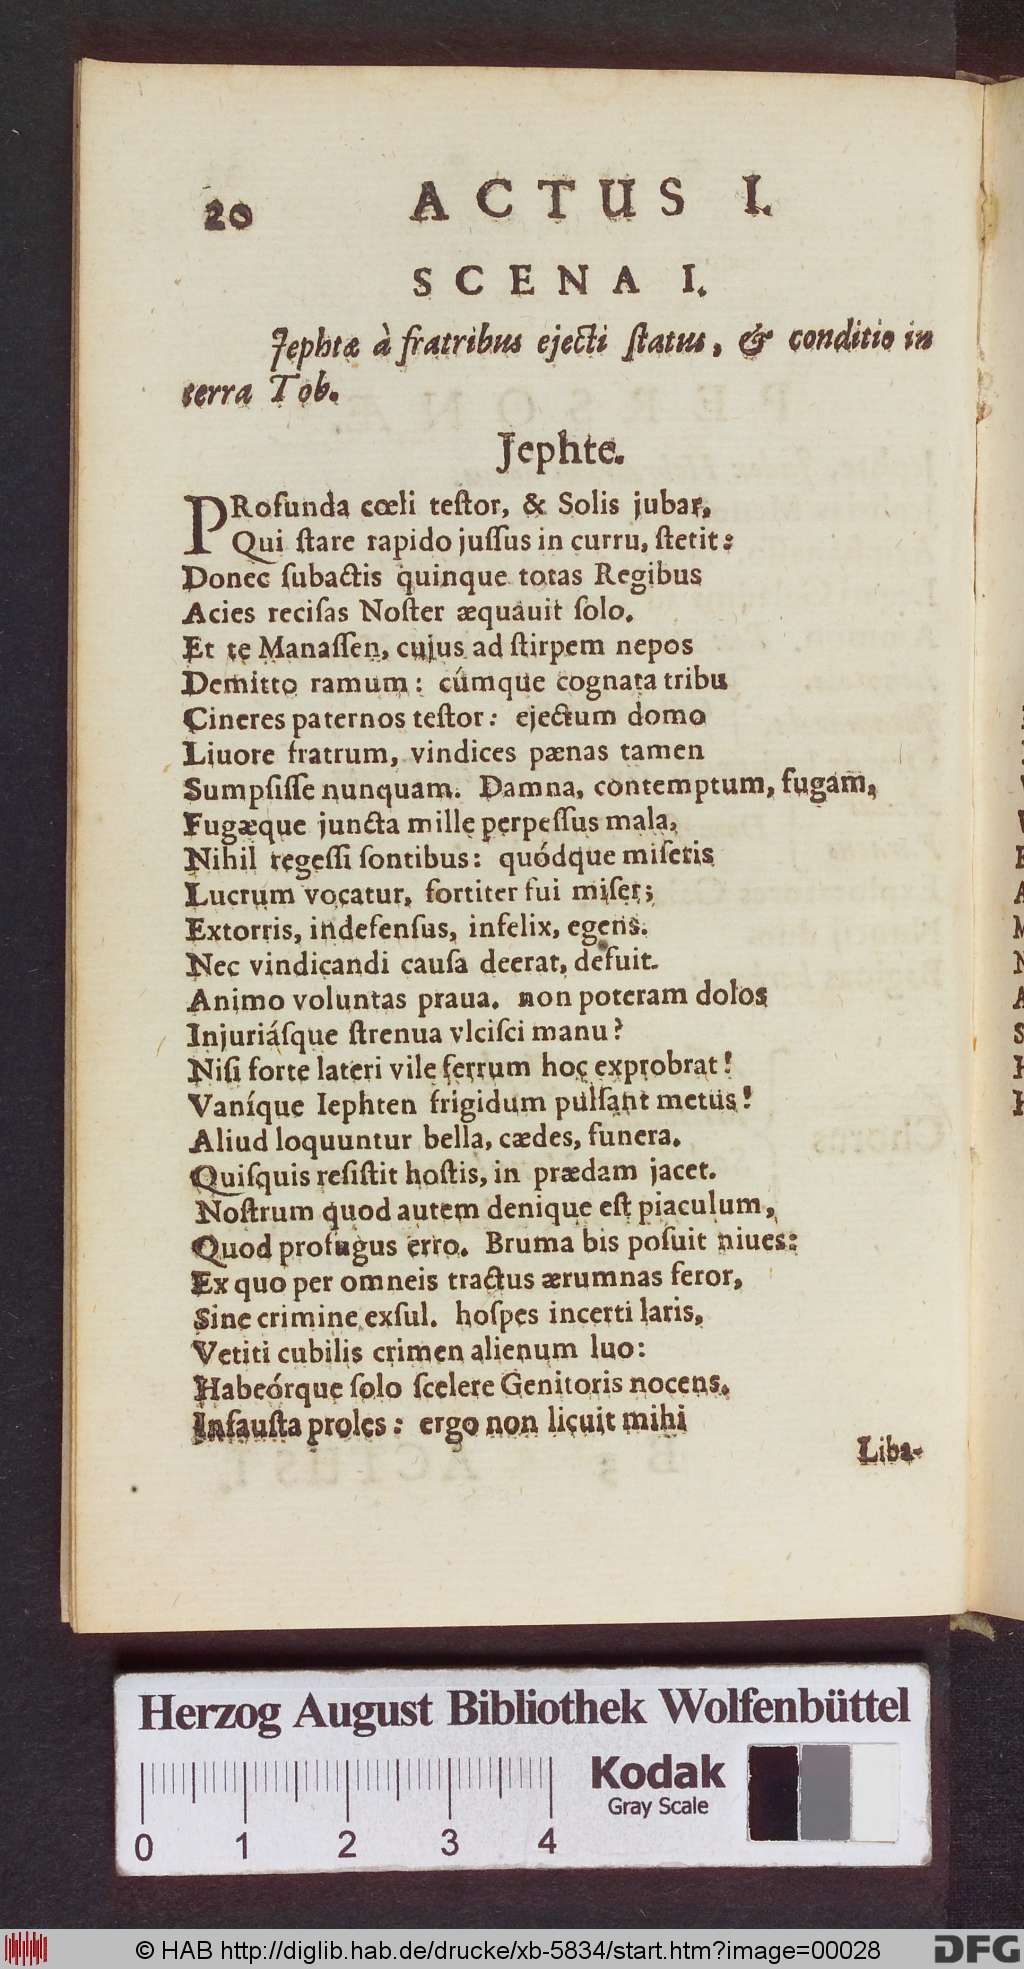 20 ACTUS I.
SCENA I.
Jephtæ à fratribus ejecti ſtatus, & conditio in
terra Tob.
Jephte.
PRofunda cœli teſtor, & Solis jubar,
Qui ſtare rapido juſſus in curru, ſtetit:
Donec ſubactis quinque totas Regibus
Acies reciſas Noſter æquauit ſolo.
Et te Manaſſen, cujus ad ſtirpem nepos
Demitto ramum: cúmque cognata tribu
Cineres paternos teſtor: ejectum domo
Liuore fratrum, vindices pænas tamen
Sumpſiſſe nunquam. Damna, contemptum, fugam,
Fugæque juncta mille perpeſſus mala,
Nihil regeſſi ſontibus: quódque miſeris
Lucrum vocatur, fortiter fui miſer;
Extorris, indefenſus, infelix, egens.
Nec vindicandi cauſa deerat, defuit
Animo voluntas praua. non poteram dolos
Injuriáſque ſtrenua vlciſci manu?
Niſi forte lateri vile ferrum hoc exprobrat!
Vaníque Iephten frigidum pulſant metus!
Aliud loquuntur bella, cædes, funera.
Quiſquis reſiſtit hoſtis, in prædam jacet.
Noſtrum quod autem denique eſt piaculum,
Quod profugus erro. Bruma bis poſuit niues:
Ex quo per omneis tractus ærumnas feror,
Sine crimine exſul. hoſpes incerti laris,
Vetiti cubilis crimen alienum luo:
Habeórque ſolo ſcelere Genitoris nocens.
Infauſta proles: ergo non licuit mihi
Liba-
Herzog August Bibliothek Wolfenbüttel
Kodak
Gray Scale
0 1 2 3 4
© HAB http://diglib.hab.de/drucke/xb-5834/start.htm?image=00028
DFG